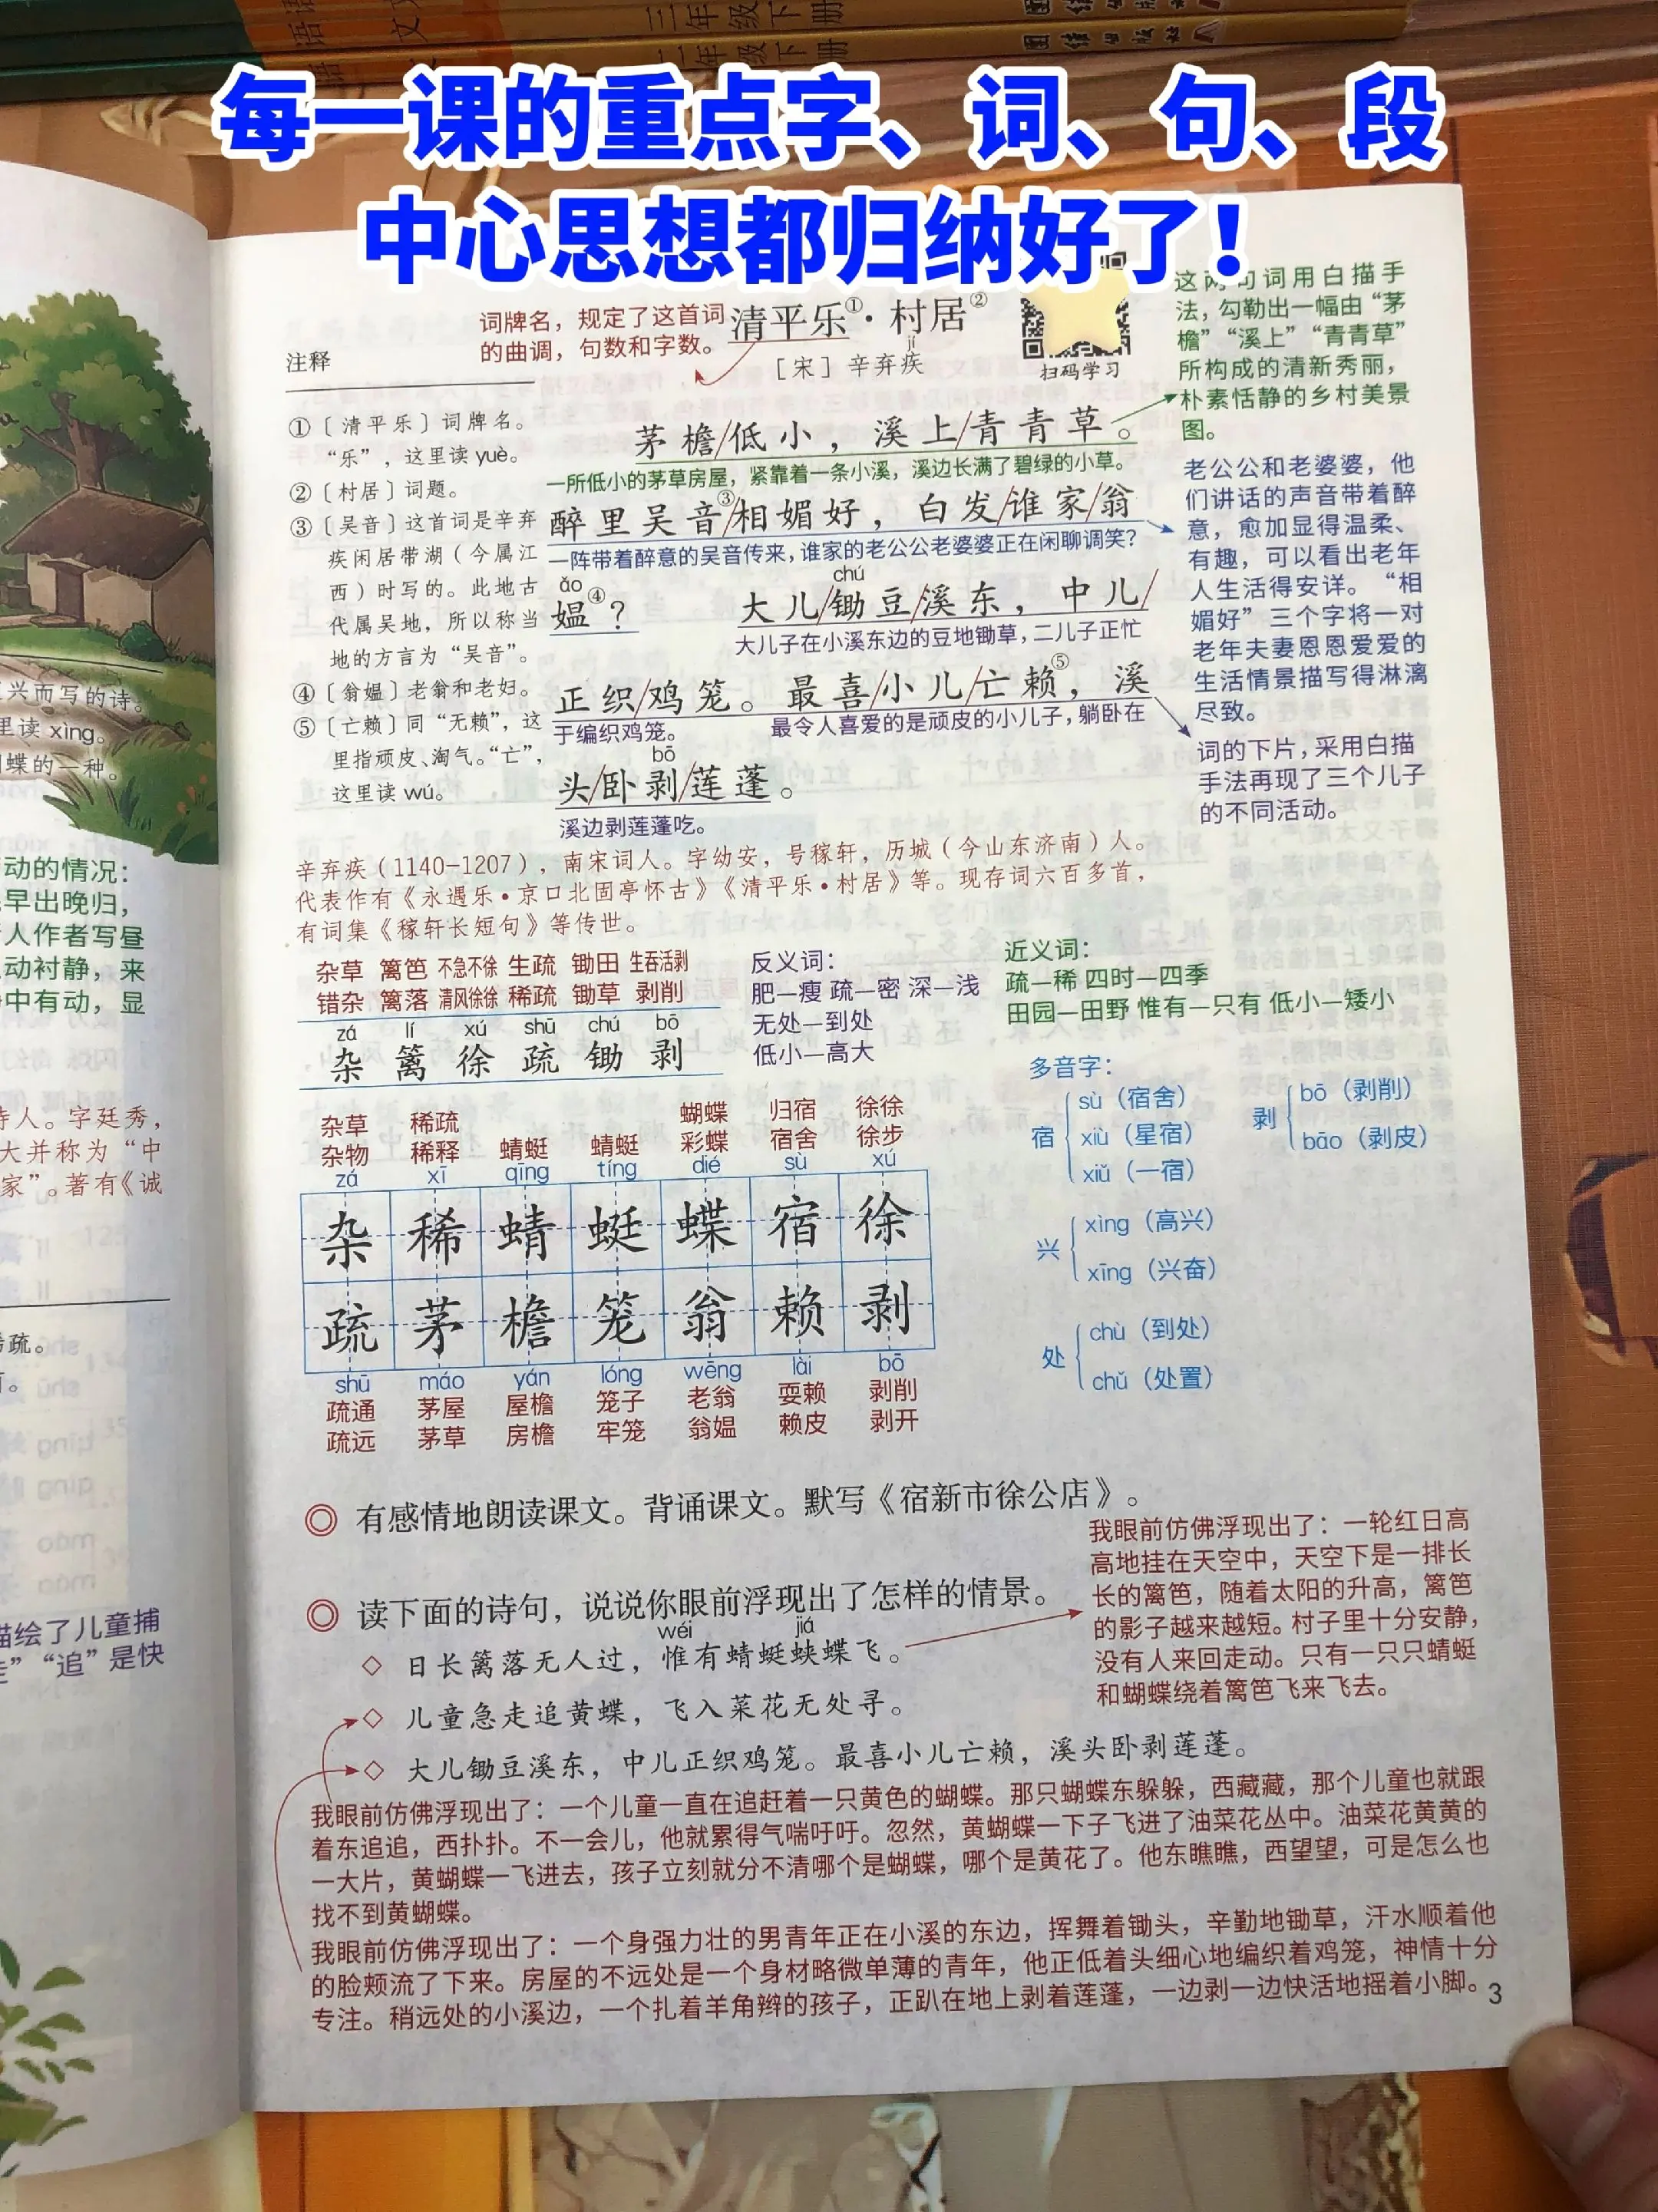 每一课的重点字、词、句、段
中心思想都归纳好了！
词牌名，规定了这首词
的曲调，句数和字数。
清平乐①·村居②
jí
［宋］辛弃疾
扫码学习
这两句词用白描手
法，勾勒出一幅由“茅
檐”“溪上”“青青草”
所构成的清新秀丽，
朴素恬静的乡村美景
图。
注释
①〔清平乐〕词牌名。
“乐”，这里读 yuè。
②〔村居〕词题。
③〔吴音〕这首词是辛弃
疾闲居带湖（今属江
西）时写的。此地古
代属吴地，所以称当
地的方言为“吴音”。
④〔翁媪〕老翁和老妇。
⑤〔亡赖〕同“无赖”，这
里指顽皮、淘气。“亡”，
这里读 wú。
茅檐/低小，溪上/青青草。
一所低小的茅草房屋，紧靠着一条小溪，溪边长满了碧绿的小草。
醉里吴音③/相媚好，白发/谁家/翁
一阵带着醉意的吴音传来，谁家的老公公老婆婆正在闲聊调笑？
ǎo chú
媪④？ 大儿/锄豆/溪东，中儿/
大儿子在小溪东边的豆地锄草，二儿子正忙
正织/鸡笼。最喜/小儿/亡赖⑤，溪
于编织鸡笼。 最令人喜爱的是顽皮的小儿子，躺卧在
bō
头/卧剥/莲蓬。
溪边剥莲蓬吃。
老公公和老婆婆，他
们讲话的声音带着醉
意，愈加显得温柔、
有趣，可以看出老年
人生活得安详。“相
媚好”三个字将一对
老年夫妻恩恩爱爱的
生活情景描写得淋漓
尽致。
词的下片，采用白描
手法再现了三个儿子
的不同活动。
辛弃疾（1140-1207），南宋词人。字幼安，号稼轩，历城（今山东济南）人。
代表作有《永遇乐·京口北固亭怀古》《清平乐·村居》等。现存词六百多首，
有词集《稼轩长短句》等传世。
杂草 篱笆 不急不徐 生疏 锄田 生吞活剥
错杂 篱落 清风徐徐 稀疏 锄草 剥削
zá lí xú shū chú bō
杂 篱 徐 疏 锄 剥
反义词：
肥—瘦 疏—密 深—浅
无处—到处
低小—高大
近义词：
疏—稀 四时—四季
田园—田野 惟有—只有 低小—矮小
多音字：
宿 sù（宿舍）
xiù（星宿）
xiǔ（一宿）
剥 bō（剥削）
bāo（剥皮）
兴 xìng（高兴）
xīng（兴奋）
处 chù（到处）
chǔ（处置）
杂草 稀疏 蝴蝶 归宿 徐徐
杂物 稀释 蜻蜓 蜻蜓 彩蝶 宿舍 徐步
zá xī qīng tíng dié sù xú
杂 稀 蜻 蜓 蝶 宿 徐
疏 茅 檐 笼 翁 赖 剥
shū máo yán lóng wēng lài bō
疏通 茅屋 屋檐 笼子 老翁 耍赖 剥削
疏远 茅草 房檐 牢笼 翁媪 赖皮 剥开
◎ 有感情地朗读课文。背诵课文。默写《宿新市徐公店》。
◎ 读下面的诗句，说说你眼前浮现出了怎样的情景。
wéi jiá
◇ 日长篱落无人过，惟有蜻蜓蛱蝶飞。
◇ 儿童急走追黄蝶，飞入菜花无处寻。
◇ 大儿锄豆溪东，中儿正织鸡笼。最喜小儿亡赖，溪头卧剥莲蓬。
我眼前仿佛浮现出了：一轮红日高
高地挂在天空中，天空下是一排长
长的篱笆，随着太阳的升高，篱笆
的影子越来越短。村子里十分安静，
没有人来回走动。只有一只只蜻蜓
和蝴蝶绕着篱笆飞来飞去。
我眼前仿佛浮现出了：一个儿童一直在追赶着一只黄色的蝴蝶。那只蝴蝶东躲躲，西藏藏，那个儿童也就跟
着东追追，西扑扑。不一会儿，他就累得气喘吁吁。忽然，黄蝴蝶一下子飞进了油菜花丛中。油菜花黄黄的
一大片，黄蝴蝶一飞进去，孩子立刻就分不清哪个是蝴蝶，哪个是黄花了。他东瞧瞧，西望望，可是怎么也
找不到黄蝴蝶。
我眼前仿佛浮现出了：一个身强力壮的男青年正在小溪的东边，挥舞着锄头，辛勤地锄草，汗水顺着他
的脸颊流了下来。房屋的不远处是一个身材略微单薄的青年，他正低着头细心地编织着鸡笼，神情十分
专注。稍远处的小溪边，一个扎着羊角辫的孩子，正趴在地上剥着莲蓬，一边剥一边快活地摇着小脚。
3
兴而写的诗。
里读 xìng。
蝶的一种。
动的情况：
早出晚归，
人作者写昼
动衬静，来
中有动，显
诗人。字廷秀，
大并称为“中
家”。著有《诚
稀疏。
描绘了儿童捕
“追”是快